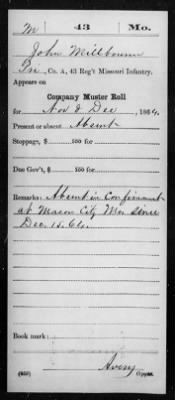 M | 43 | Mo.
John Millbourn
Pri, Co. A, 43 Reg't Missouri Infantry.
Appears on
Company Muster Roll
for Nov & Dec, 1864.
Present or absent Absent
Stoppage, $ 100 for
Due Gov't, $ 100 for
Remarks: Absent in Confinement
at Macon City Mo. since
Dec. 15. 64.
Book mark:
Avery
(358) Copyist.